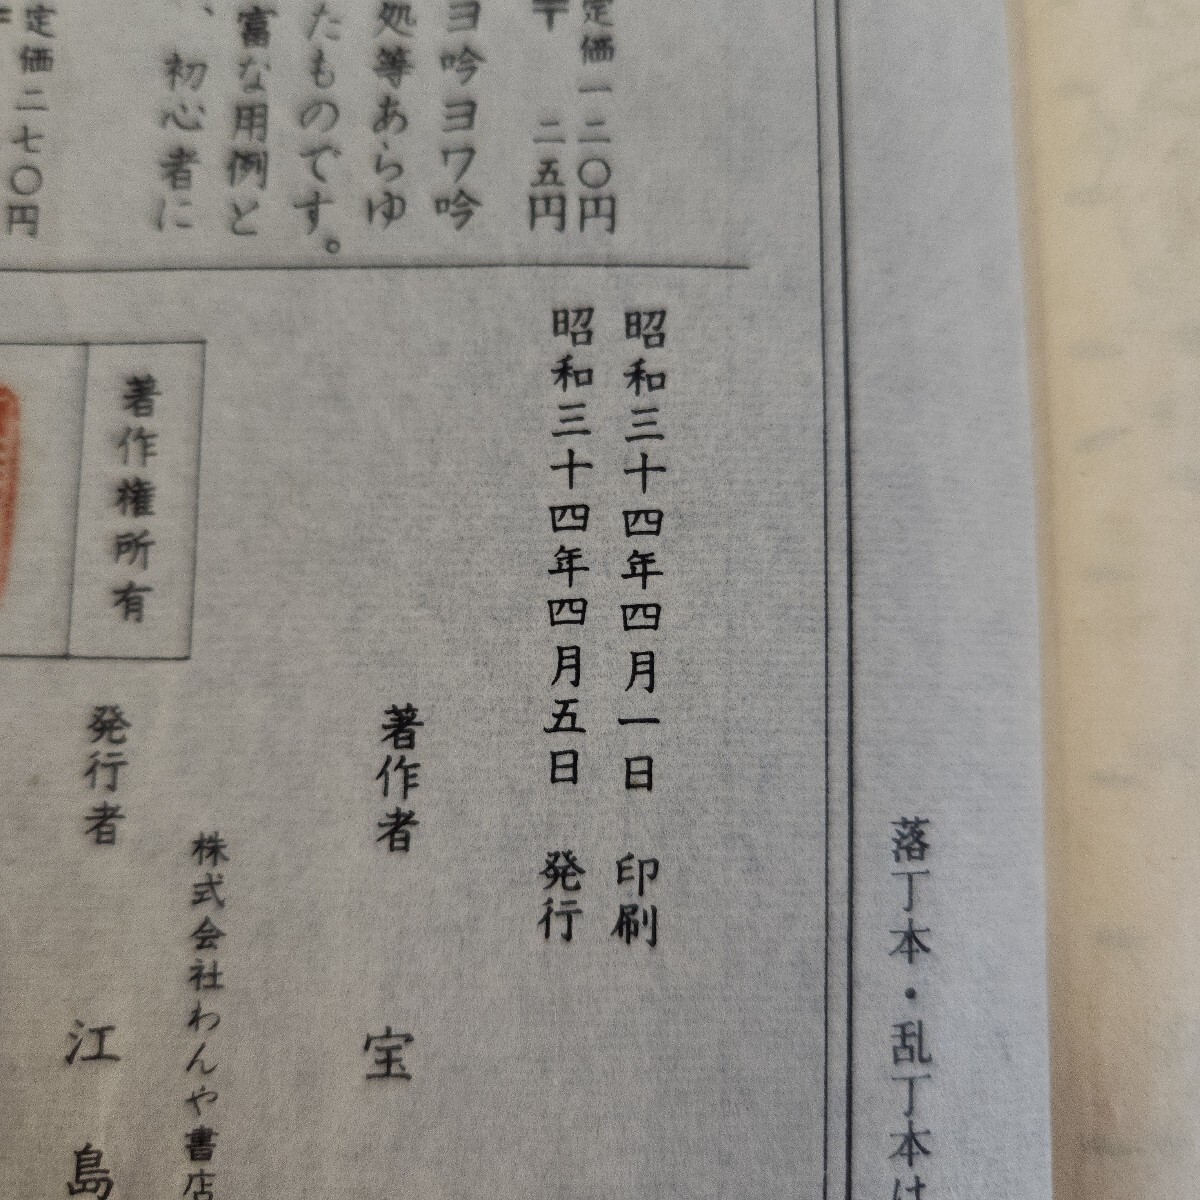 落丁本・乱丁本は
定価一二〇円
〒 二五円
ヨ吟ヨワ吟
処等あらゆ
たものです。
富な用例と
、初心者に
定価二七〇円
昭和三十四年四月一日 印刷
昭和三十四年四月五日 発行
著作者 宝
著作権所有
株式会社わんや書店
発行者 江島